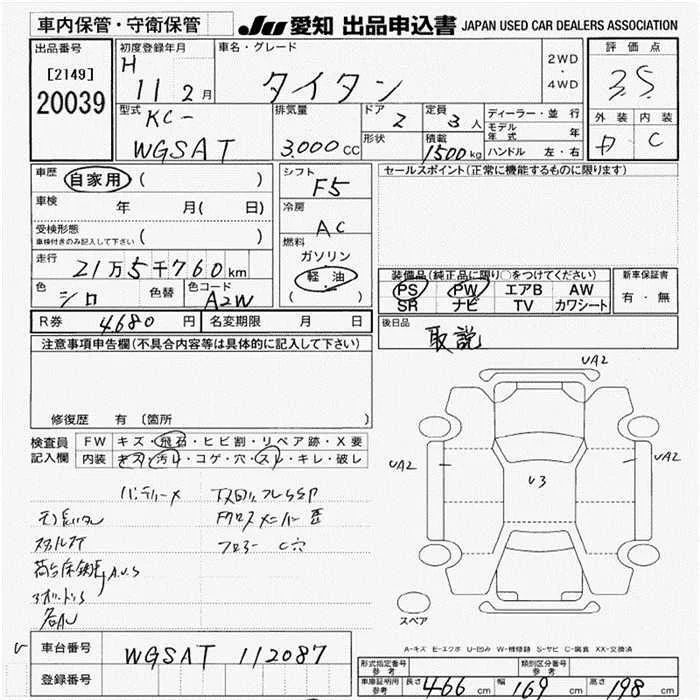 車内保管・守衛保管
JU 愛知 出品申込書 JAPAN USED CAR DEALERS ASSOCIATION
出品番号
[2149]
20039
初度登録年月
H
11 2月
車名・グレード
タイタン
2WD
・
4WD
評価点
3.5
外装 内装
D C
型式
KC-
WGSAT
排気量
3.000CC
ドア
2
形状
定員
3人
積載
1500kg
ディーラー・並行
モデル年式 年
ハンドル 左・右
車歴 自家用 ( )
車検 年 月( 日)
受検形態
車検付きのみ記入して下さい ( )
走行 21万5千760km
色 シロ
色替
色コード A2W
シフト
F5
冷房
AC
燃料
ガソリン
軽油
( )
セールスポイント(正常に機能するものに限ります)
装備品(純正品に限り○をつけてください)
PS PW エアB AW
SR ナビ TV カワシート
新車保証書
有・無
R券 4680円
名変期限 月 日
後日品
取説
注意事項申告欄(不具合内容等は具体的に記入して下さい)
修復歴 有 〔箇所 〕
検査員
記入欄
FW キズ・飛石・ヒビ割・リペア跡・X要
内装 キズ・汚レ・コゲ・穴・スレ・キレ・破レ
UA2
UA2
U3
UA2
スペア
A-キズ E-エクボ U-凹み W-補修跡 S-サビ C-腐食 XX-交換済
車台番号 WGSAT 112087
登録番号
形式指定番号
参考
類別区分番号
参考
車庫証明用
参考
長さ 466cm 幅 169cm 高さ 198cm